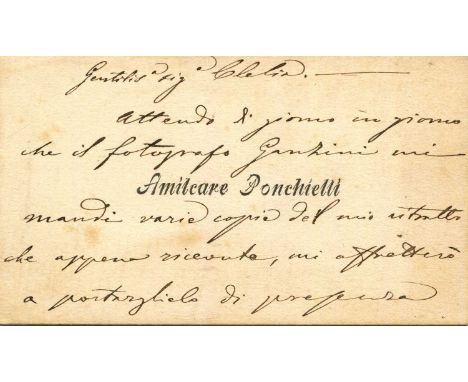 Gentilis.a sig.a Clelia.
Attendo di giorno in giorno
che il fotografo Ganzini mi
Amilcare Ponchielli
mandi varie copie del mio ritratto
che appena ricevute, mi affretterò
a portarglielo di presenza